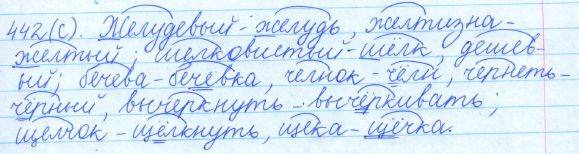 442(с). Желудевый-желудь, желтизна-
желтый; шелковистый-шёлк, дешев-
ый; бечева-бечевка, челнок-чёлн, чернеть-
чёрный, вычеркнуть-вычёркивать;
щелчок-щёлкнуть, щека-щёчка.